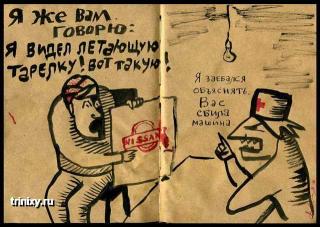 Я же вам
говорю:
я видел летающую
тарелку! вот такую!
NISSAN
Я заебался
объяснять,
Вас
сбила
машина
trinixy.ru